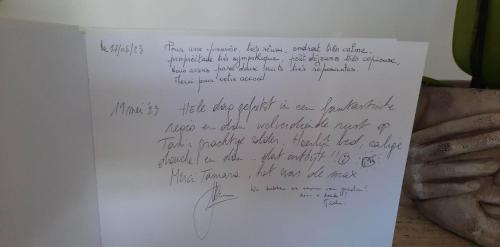 le 17/05/23 Pour une première, très réussi, endroit très calme,
propriétaire très sympathique, petit déjeuner très copieux,
nous avons passé deux nuits très reposantes.
Merci pour votre accueil
19 mei '23 Hele dag gefietst in een fantastische
regio en dan welverdiende rust op
prachtige zolder. Heerlijk bed, zalige
douche en dan dat ontbijt!!
Merci Tamara, het was de max
We hebben er van genoten!